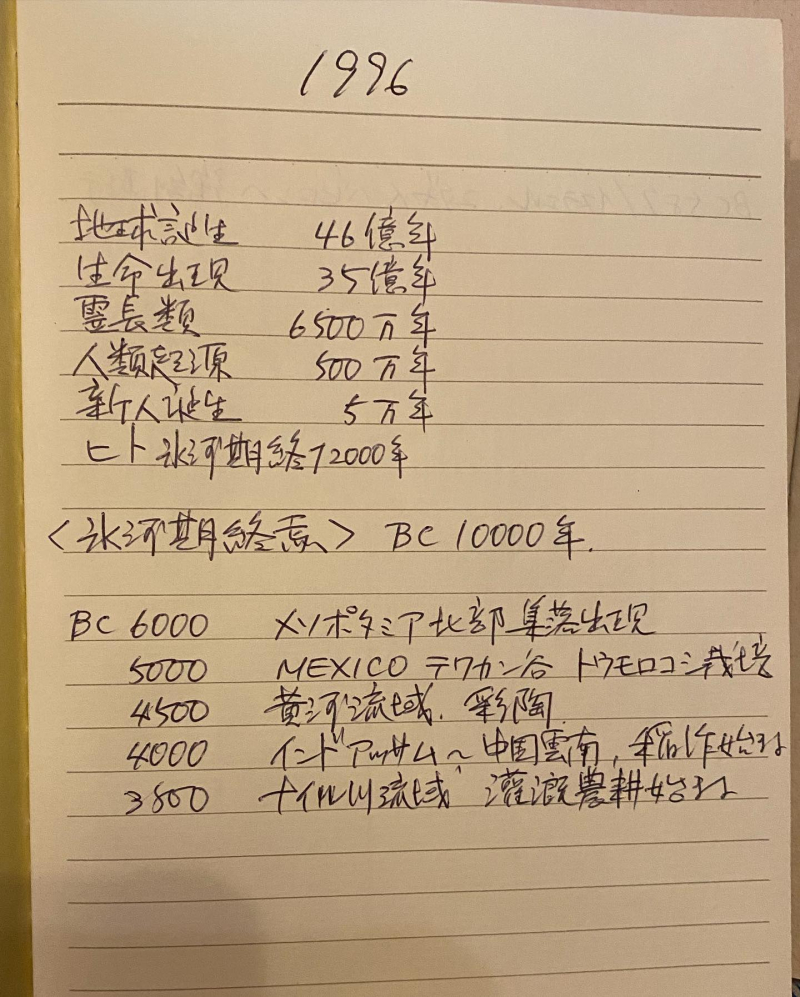 1996
地球誕生 46億年
生命出現 35億年
霊長類 6500万年
人類起源 500万年
新人誕生 5万年
ヒト 氷河期終 12000年
<氷河期終焉> BC 10000年.
BC 6000 メソポタミア北部 集落出現
5000 MEXICO テワカン谷 トウモロコシ栽培
4500 黄河流域. 彩陶.
4000 インドアッサム〜中国雲南, 稲作始まる
3800 ナイル川流域 灌漑農耕始まる